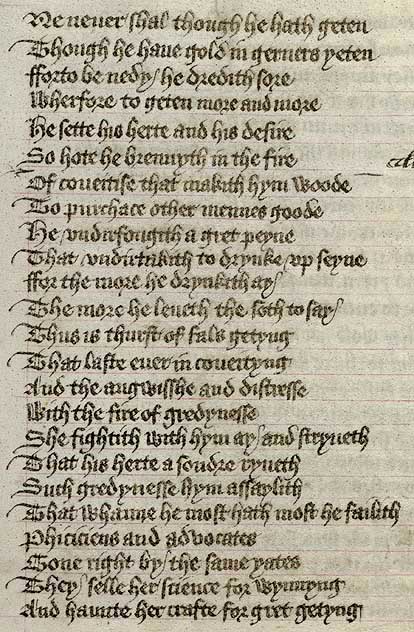 Ne neuer shal though he hath geten
Though he haue gold in gerners yeten
fforto be nedy he dredith sore
Wherfore to geten more and more
He sette his herte and his desire
So hote he brennyth in the fire
Of coueitise that makith hym woode
To purchace other mennes goode
He vndirfongith a gret peyne
That vndirtakith to drynke vp seyne
ffor the more he drynkith ay
The more he leueth the soth to say
Thus is thurst of fals getyng
That laste euer in coueityng
And the angwisshe and distresse
With the fire of gredynesse
She fightith with hym ay and stryueth
That his herte a sondre ryueth
Such gredynesse hym assaylith
That whanne he most hath most he failith
Phiciciens and aduocates
Gone right by the same yates
They selle her science for wynnyng
And haunte her crafte for gret getyng